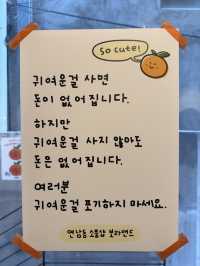 so cute!
귀여운걸 사면
돈이 없어집니다.
하지만
귀여운걸 사지 않아도
돈은 없어집니다.
여러분
귀여운걸 포기하지 마세요.
연남동 소품샵 보라맨드